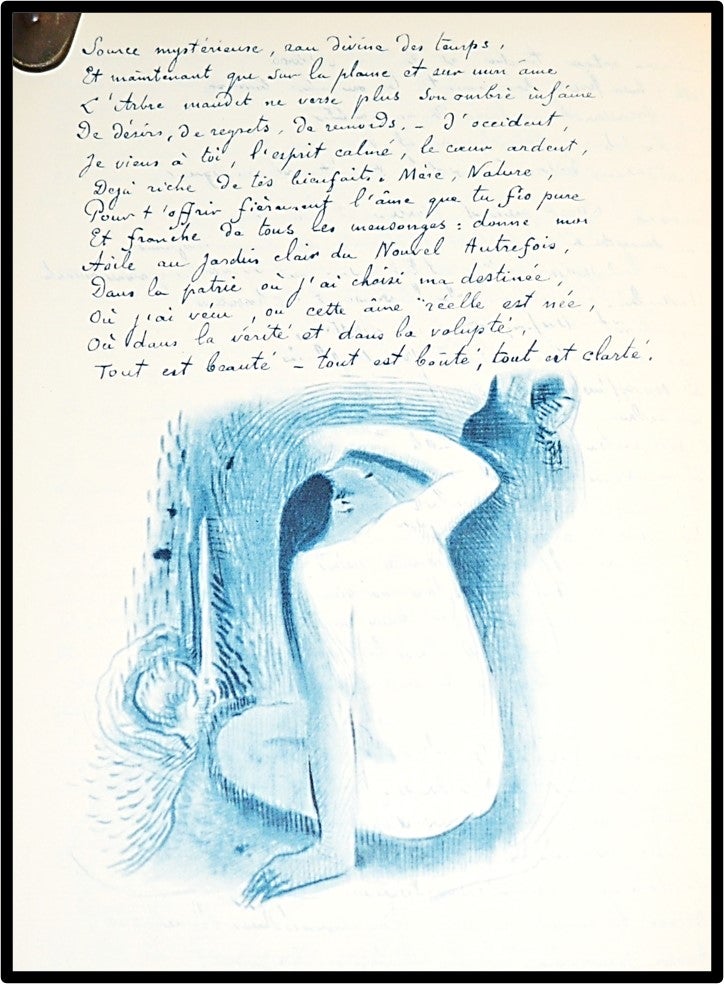 Source mystérieuse, eau divine des temps,
Et maintenant que sur la plaine et sur mon âme
L'Arbre maudit ne verse plus son ombre infâme
De désirs, de regrets, de remords, – d'occident,
Je viens à toi, l'esprit calmé, le cœur ardent,
Dejà riche de tes bienfaits, Mère, Nature,
Pour t'offrir fièrement l'âme que tu fis pure
Et franche de tous les mensonges : donne moi
Asile au jardin clair du Nouvel Autrefois,
Dans la patrie où j'ai choisi ma destinée,
Où j'ai vécu, où cette âme réelle est née,
Où dans la vérité et dans la volupté,
Tout est beauté – tout est bonté, tout est clarté.